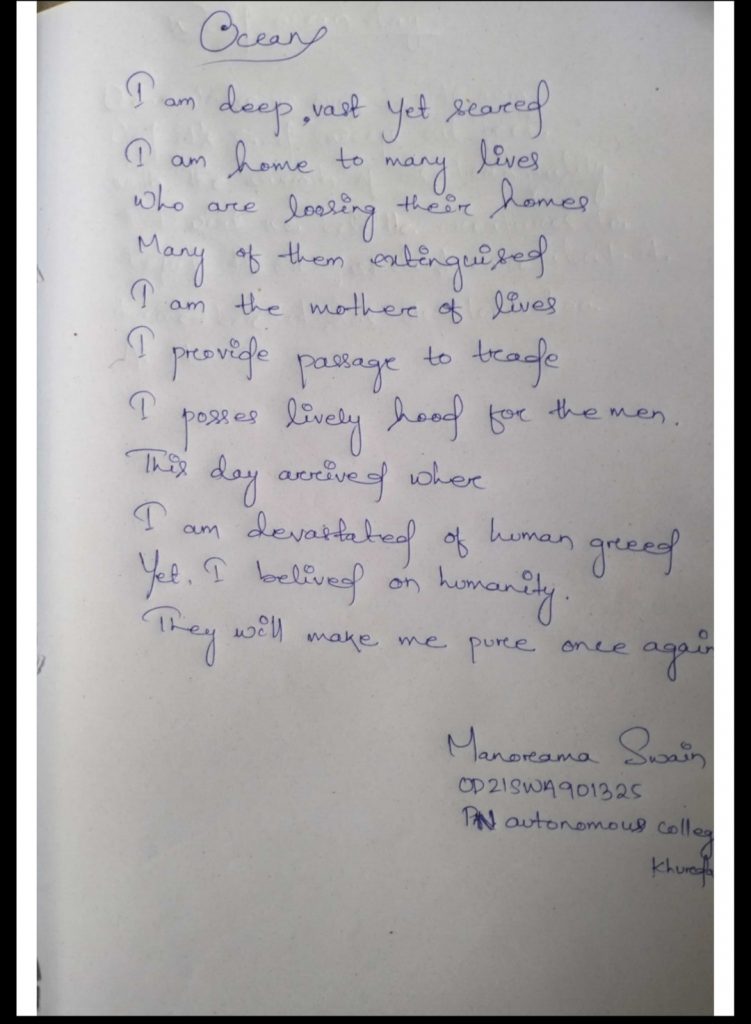 Ocean
I am deep, vast yet scared
I am home to many lives
Who are loosing their homes
Many of them extinguised
I am the mother of lives
I provide passage to trade
I posses lively hood for the men.
This day arrived when
I am devastated of human greed
Yet, I belived on humanity.
They will make me pure once again
Manorama Swain
OD21SWA901325
PN autonomous colleg
Khurda